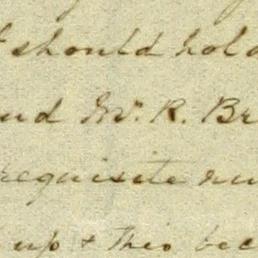 should hold
and Mr. R. Br
requisite nu
up & this bec